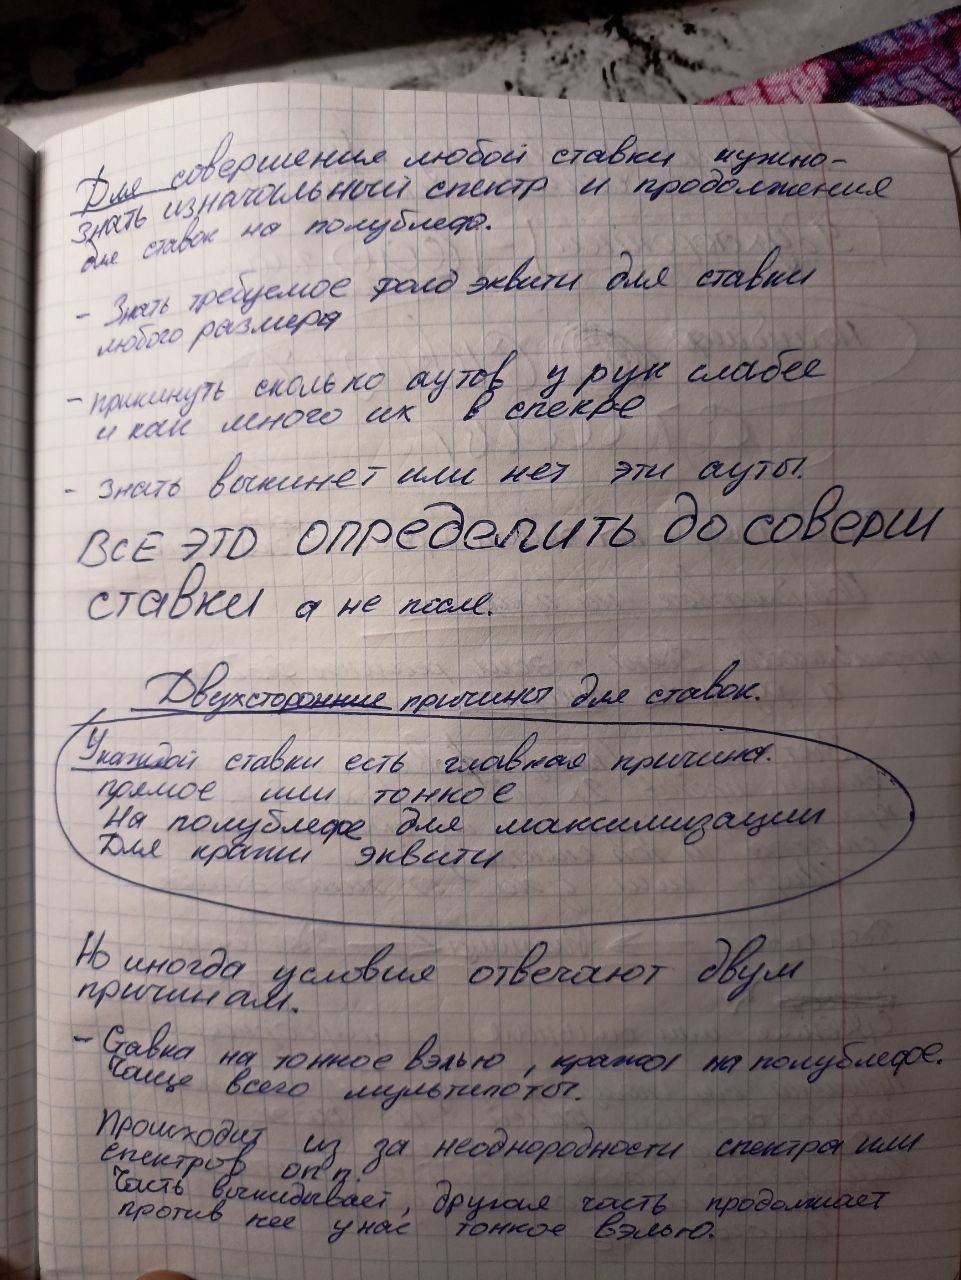 Для совершения любой ставки нужно-
знать изначальный спектр и продолжения
для ставок на полублефе.
- Знать требуемое фолд эквити для ставки
любого размера
- прикинуть сколько аутов у рук слабее
и как много их в спекре
- знать выкинет или нет эти ауты.
ВСЕ ЭТО ОПРЕДЕЛИТЬ ДО СОВЕРШ
СТАВКИ а не после.
Двухсторонние причины для ставок.
У каждой ставки есть главная причина.
прямое или тонкое
На полублефе для максимизации
Для кражи эквити
Но иногда условия отвечают двум
причинам.
- Ставка на тонкое вэлью, кража на полублефе.
Чаще всего мультипоты.
Происходит из за неоднородности спектра или
спектров опп.
Часть выкидывает, другая часть продолжает
против нее у нас тонкое вэлью.